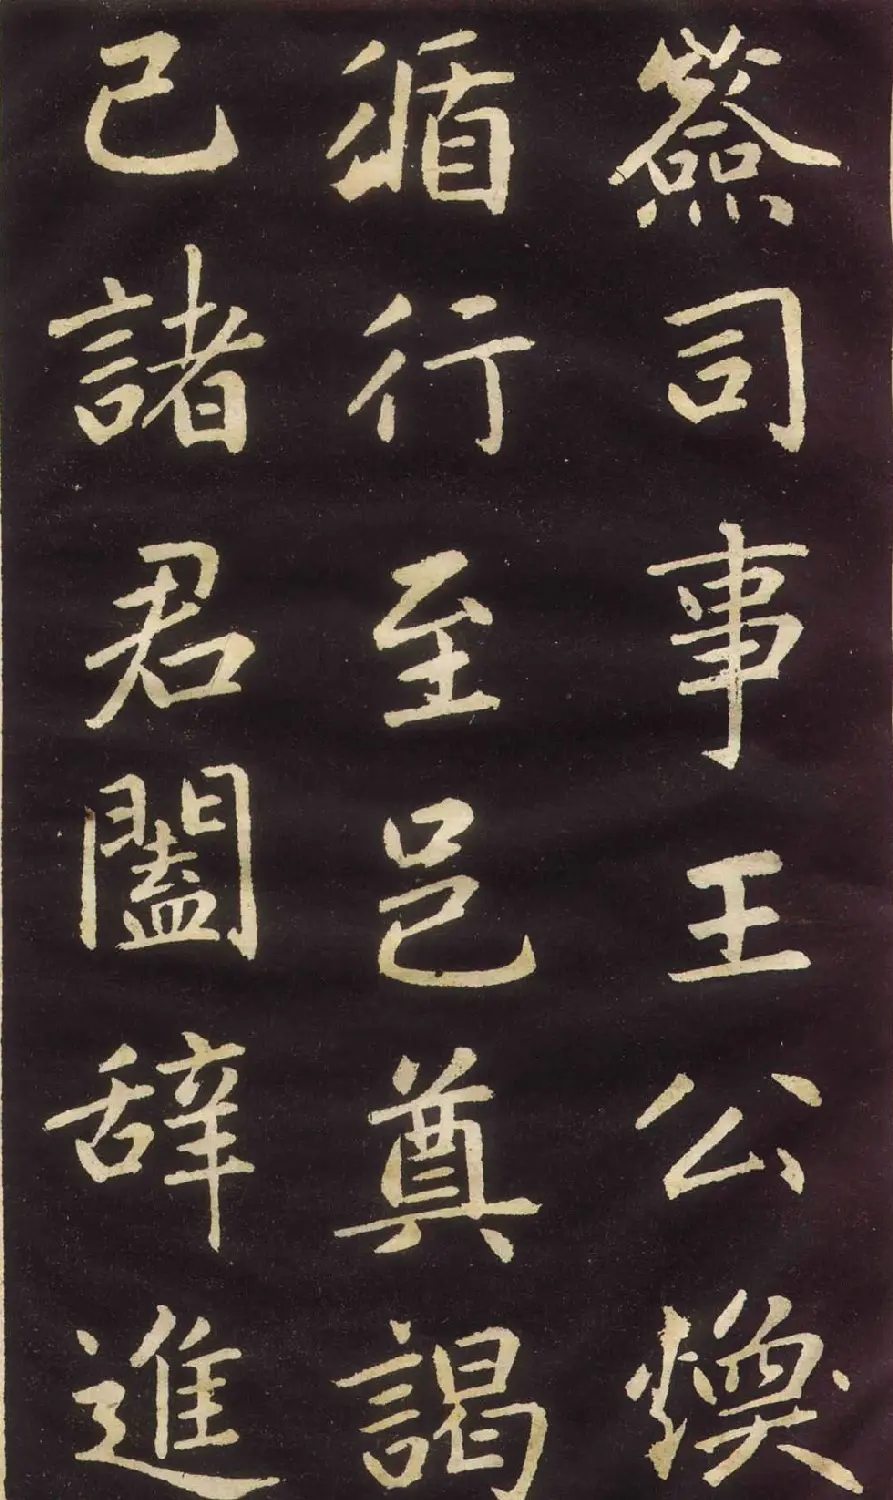 僉司事王公煥
循行至邑奠謁
已諸君闔辞進